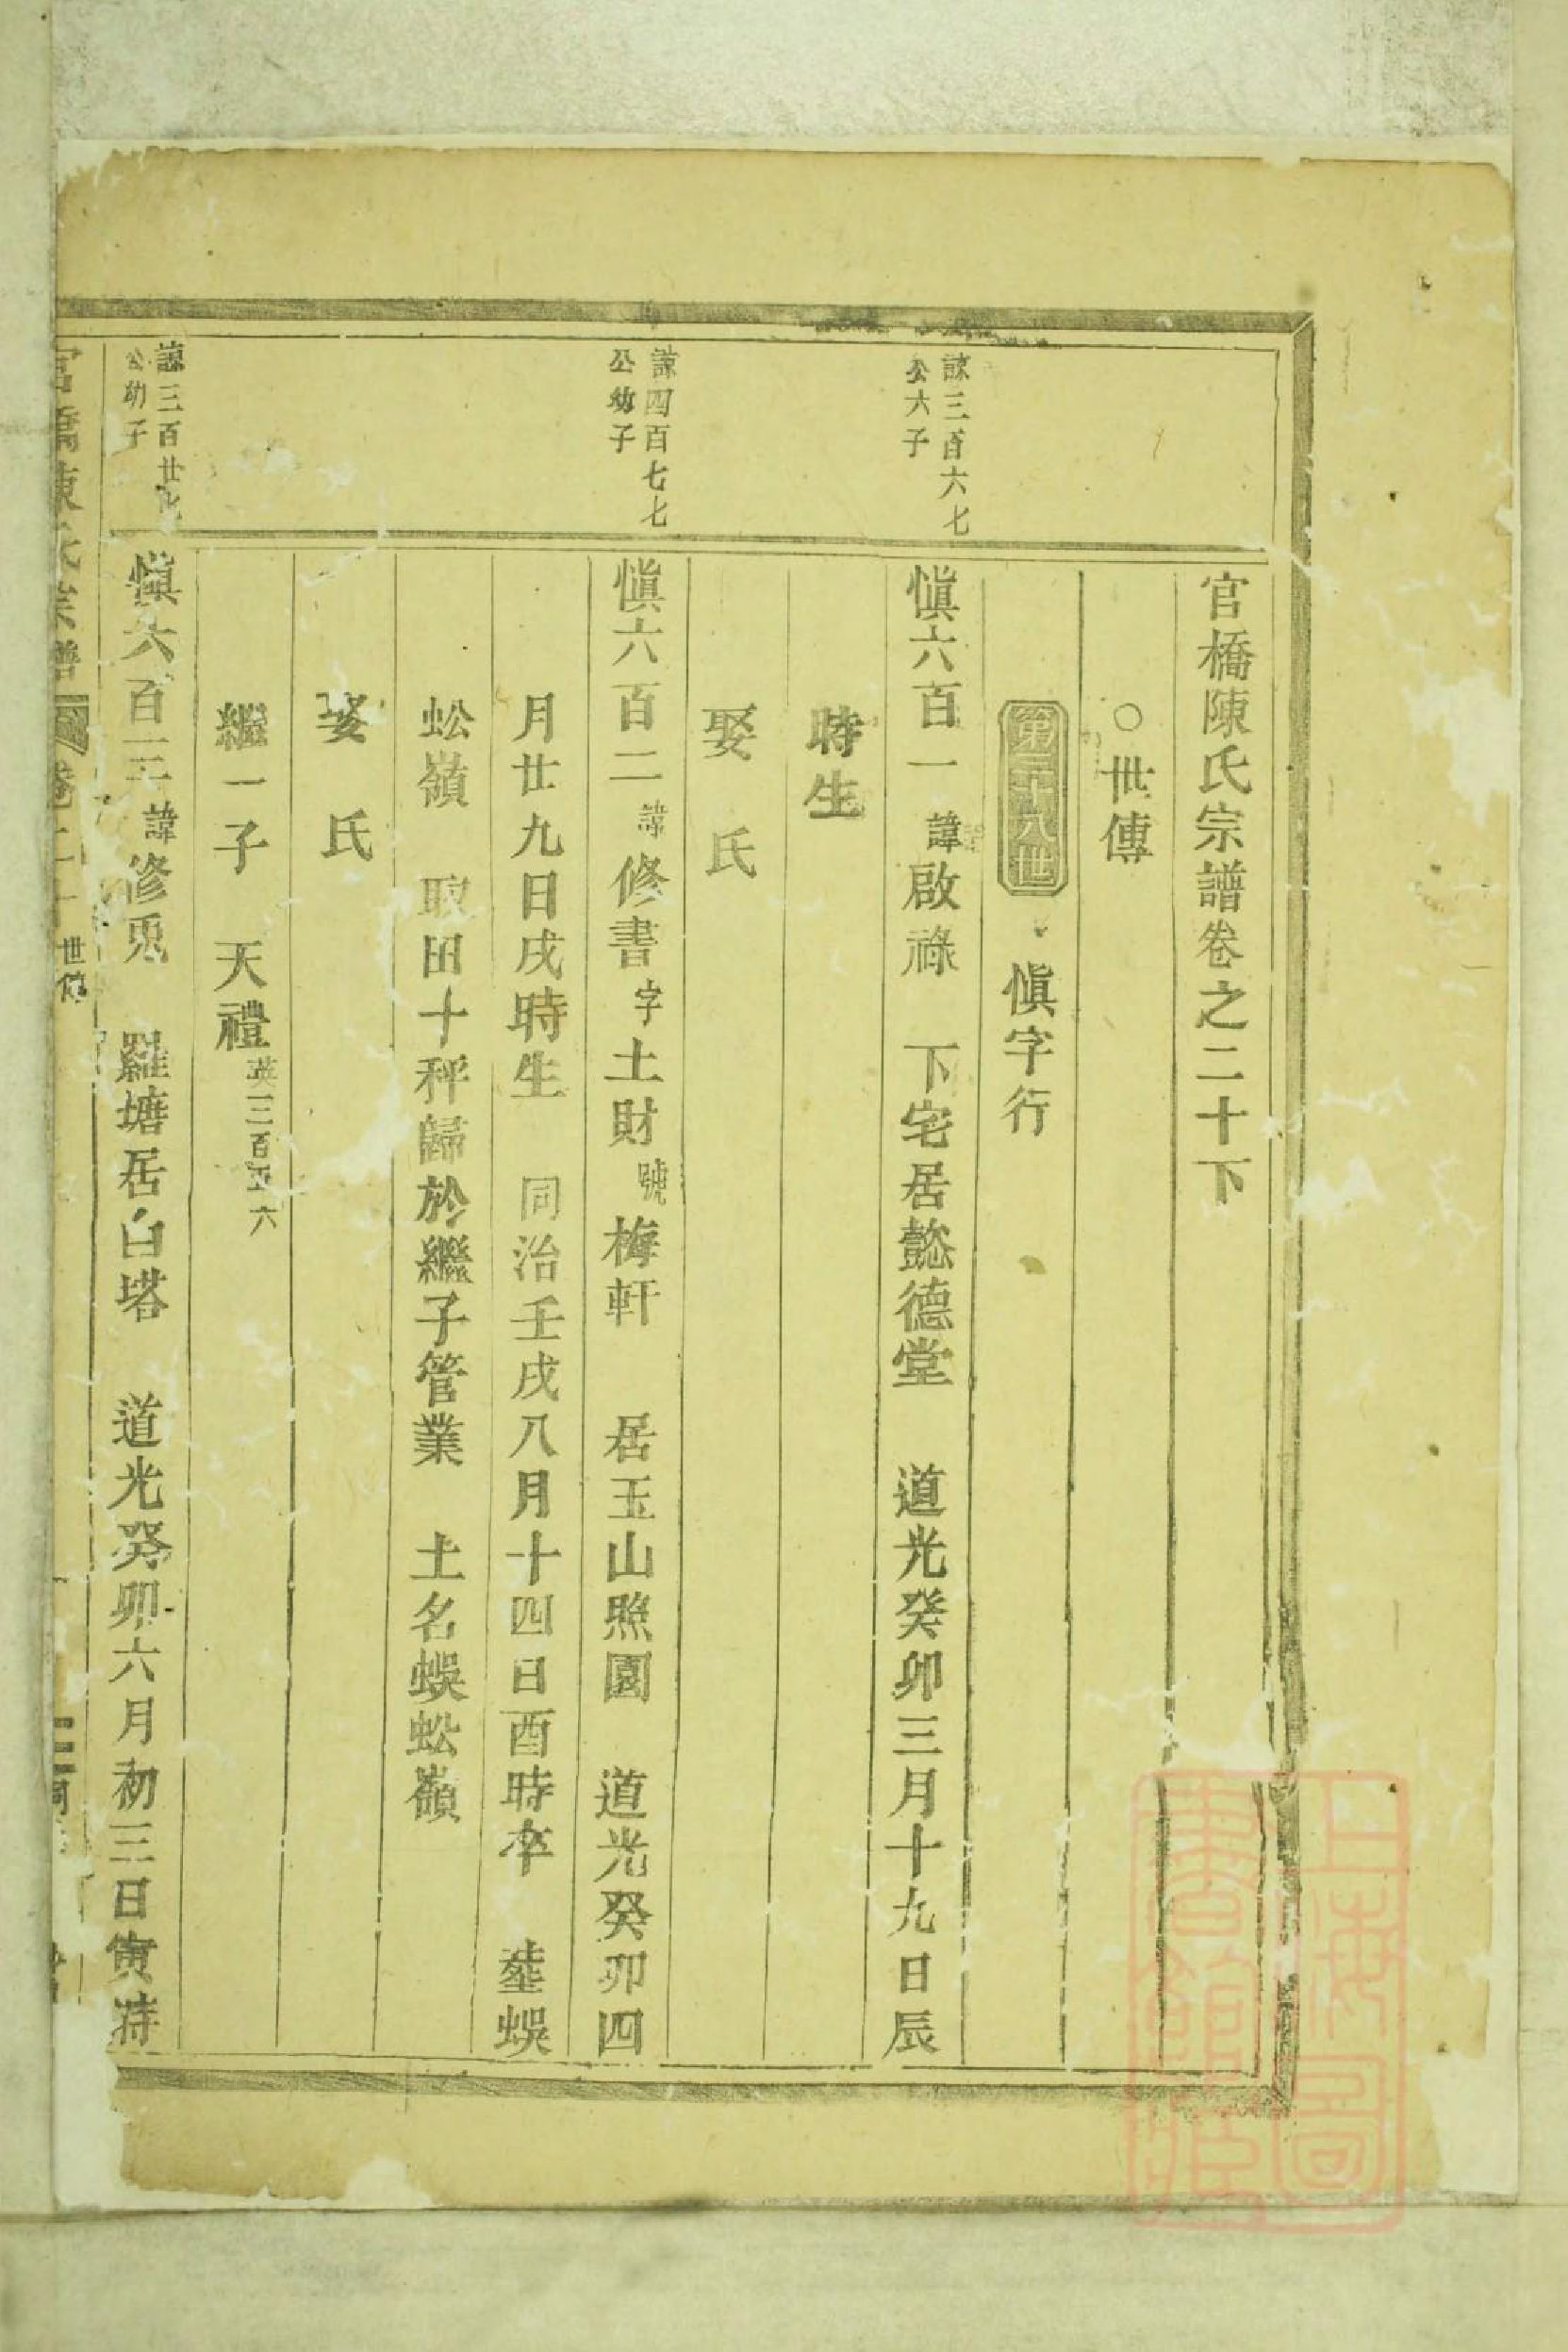 官橋陳氏宗譜卷之二十下
○世傳
第二十八世 慎字行
諒三百六七
公六子
慎六百一諱啟祿 下宅居懿德堂 道光癸卯三月十九日辰
時生
娶 氏
諒四百七七
公幼子
慎六百二諱修書字土財號梅軒 居玉山照園 道光癸卯四
月廿九日戌時生 同治壬戌八月十四日酉時卒 塟蜈
蚣嶺 取田十秤歸於繼子管業 土名蜈蚣嶺
娶 氏
繼一子 天禮英三百五六
諒三百廿七
公幼子
慎六百三諱修兎 羅塘居白塔 道光癸卯六月初三日寅時
官橋陳氏宗譜 卷二十 世傳
上海圖
書館藏